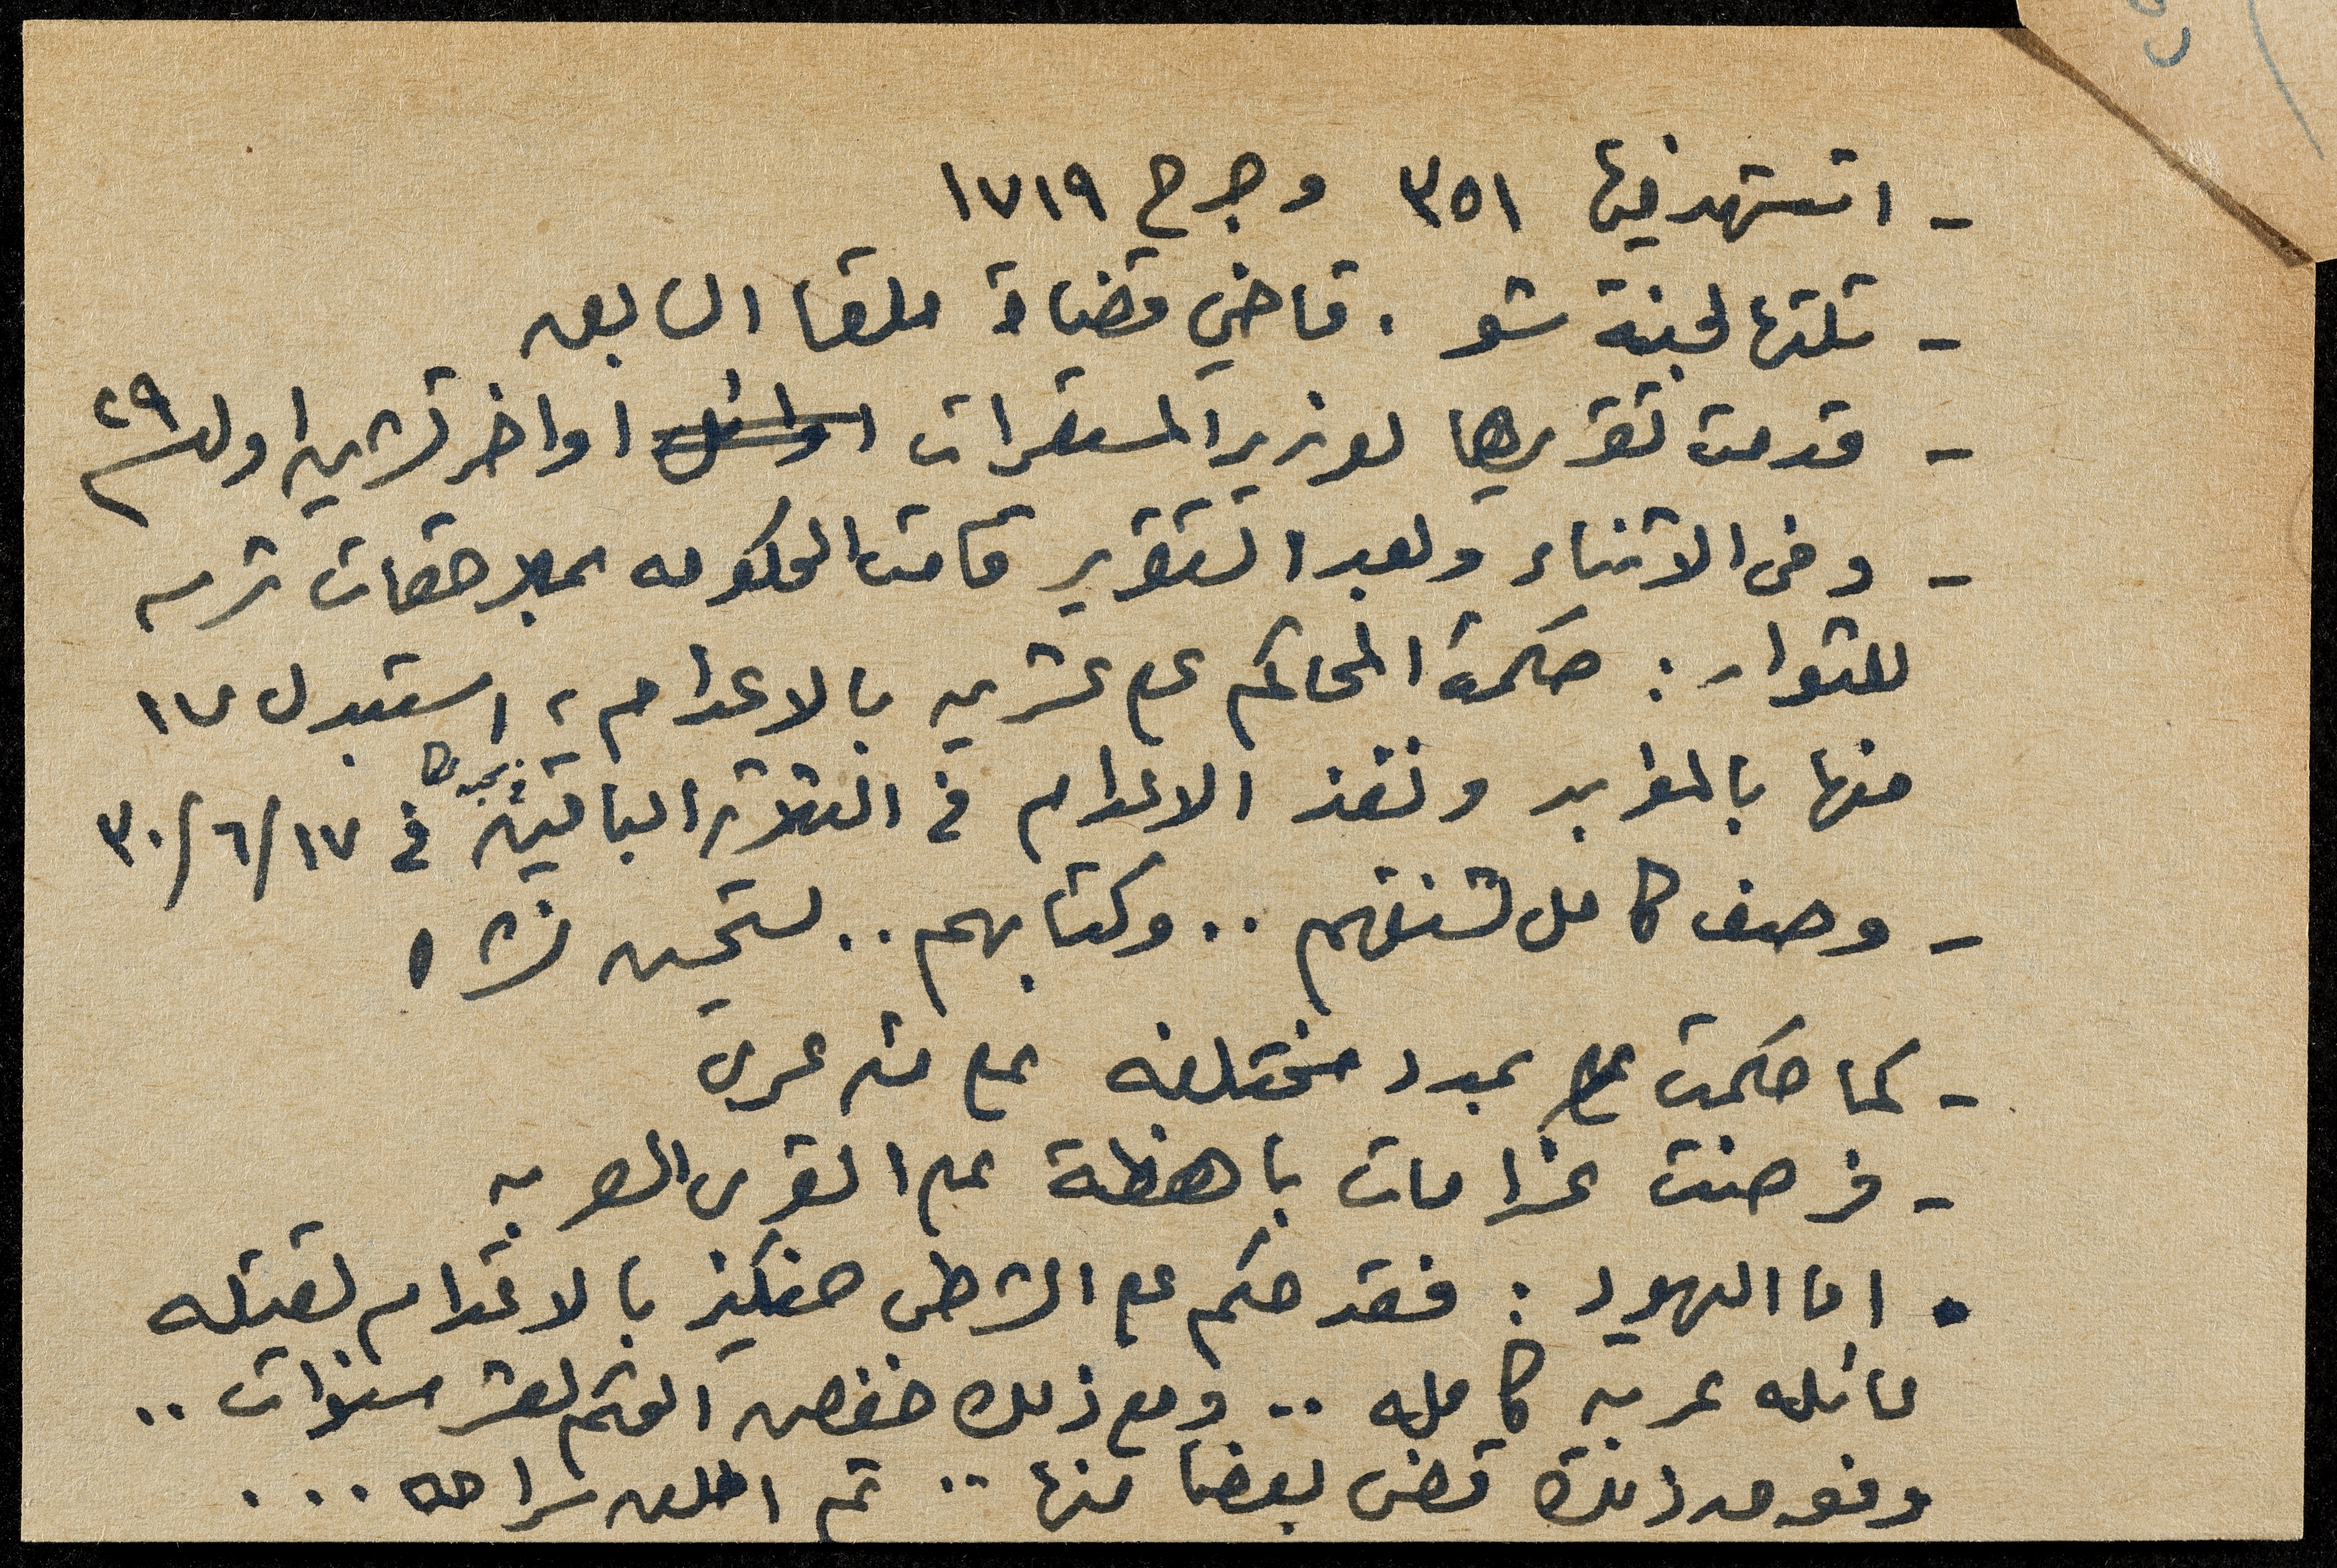 - استشهد فيها ٣٥١ وجرح ١٧١٩
- تلتها لجنة شو . قاضي قضاة ملقا السابق
- قدمت تقريرها لوزير المستعمرات اوائل اواخر تشرين اول ٢٩
- وفى الاثناء وبعد التقرير قامت الحكومه بملاحقات شرسه
للثوار : حكمت المحاكم على عشرين بالاعدام ، استبدل ١٧
منها بالمؤبد ونفذ الاعدام في الثلاثة الباقين في ٣٠/٦/١٧
- وصف كامل لشنقهم .. وكتابهم .. نستحسن نشره
- كما حكمت بمدد مختلفه على مئه عربى
- فرضت غرامات باهظة على القرى العربيه
• اما اليهود : فقد حكم على الشرطى حنكيز بالاعدام لقتله
عائله عربيه كامله .. ومع ذلك خفض الحكم لعشر سنوات ..
وفوق ذلك قضى بعضا منها .. ثم اطلق سراحه ...